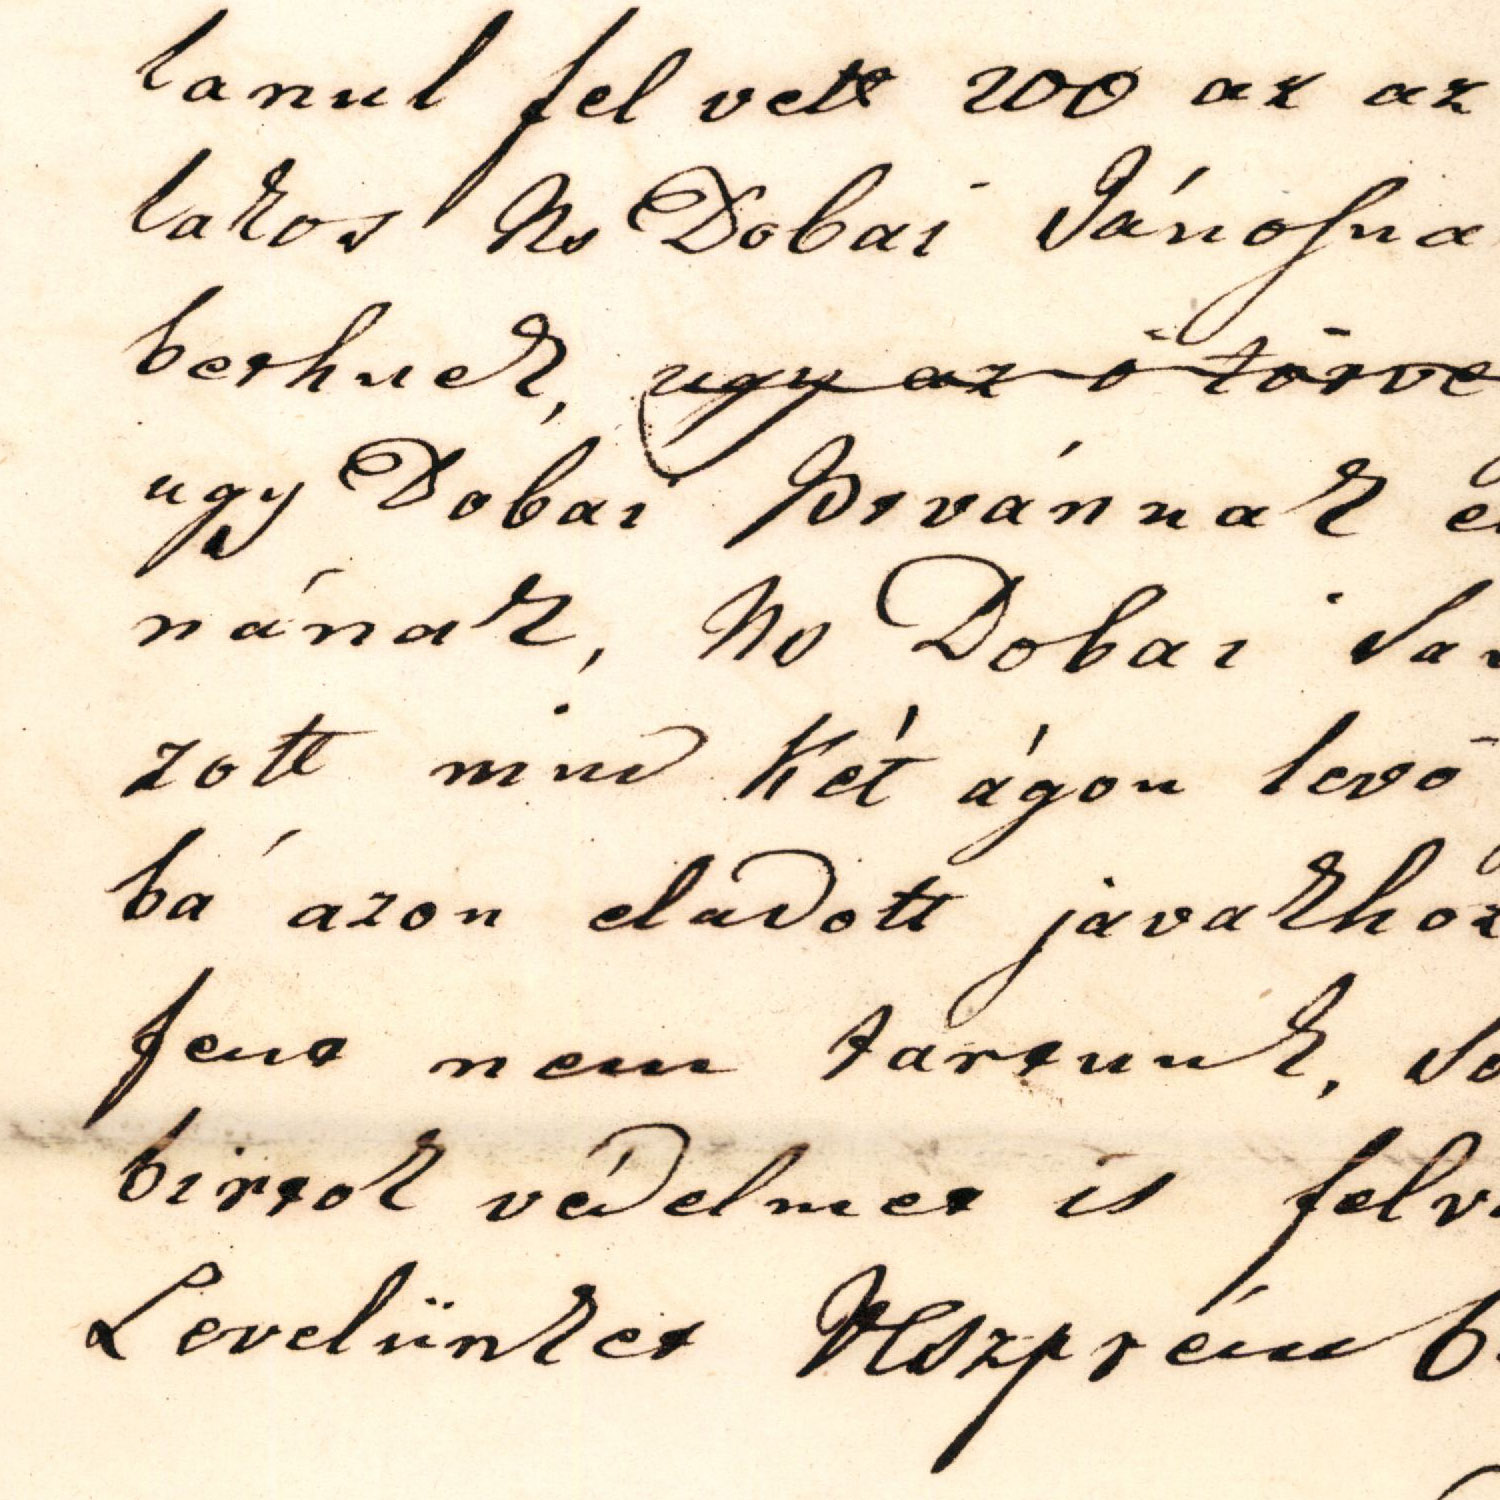 tanul fel vett 200 az az
lakos Ns Dobai Jánosna
berknek, ugy az ő törve
ugy Dobai Istvánnak
nának, Ns Dobai
zott mind két ágon levő
bá azon eladott javakhoz
fent nem tartunk,
birtok védelmet is felv
Levelünket Veszprém b